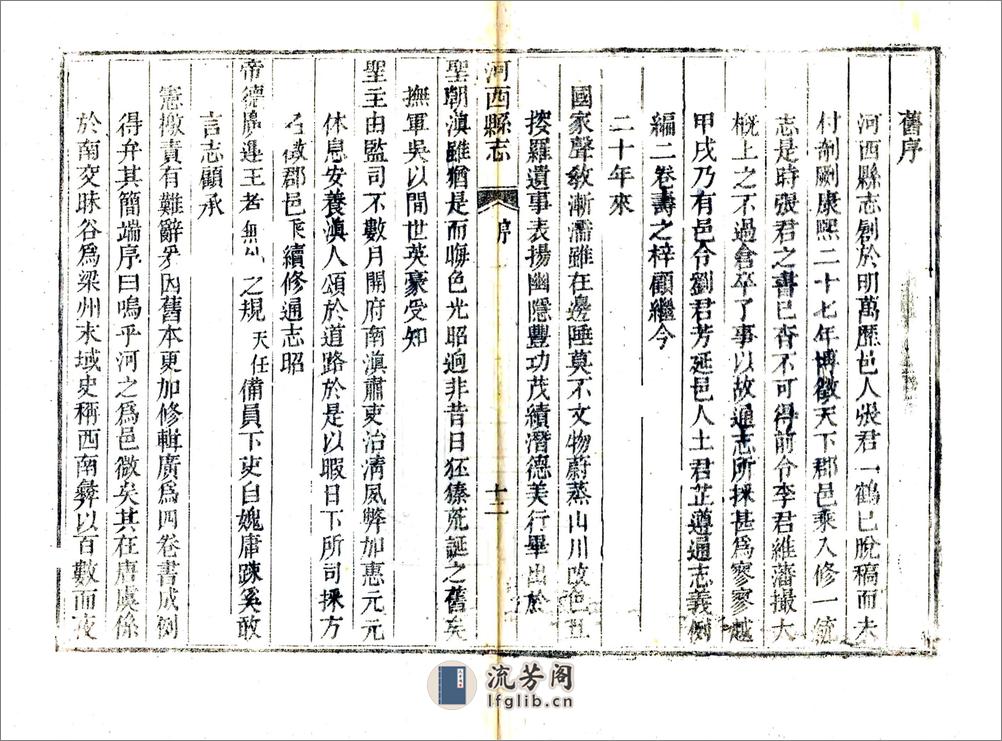 舊序
河西縣志創於明萬歷邑人張君一鶴已脫稿而未
付剞劂康熙二十七年博徵天下郡邑乘入修一統
志是時張君之書已杳不可得前令李君維藩撮大
槪上之不過倉卒了事以故通志所採甚爲寥寥越
甲戌乃有邑令劉君芳延邑人士君芷遵通志義例
編二卷壽之梓顧繼今
二十年來
國家聲敎漸濡雖在邊陲莫不文物蔚蒸山川改色
按羅遺事表揚幽隱豐功茂績潛德美行畢出於
河西縣志 序 十二
聖朝滇雖猶是而晦色光昭迥非昔日狉獉荒誕之舊矣
撫軍吳以間世英豪受知
聖主由監司不數月開府南滇肅吏治清風弊加惠元元
休息安養滇人頌於道路於是以暇日下所司採方
名徵郡邑乘續修通志昭
帝德廣運王者無外之規天任備員下吏自媿庸踈奚敢
言志顧承
憲檄責有難辭爰因舊本更加修輯廣爲四卷書成例
得弁其簡端序曰嗚乎河之爲邑微矣其在唐虞係
於南交昧谷爲梁州末域史稱西南彝以百數而夜
流芳阁
lfglib.cn